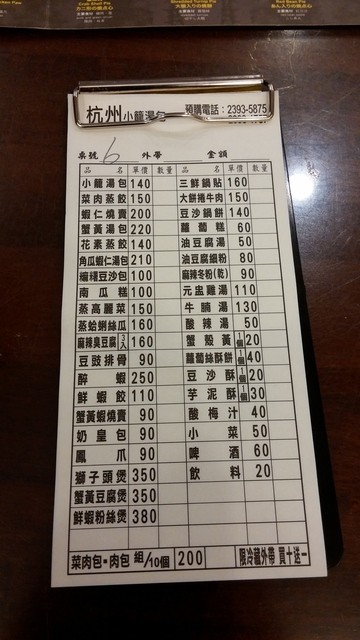 Crab Shell Pie
Shredded Turnip Pie
Red Bean Pie
杭州小籠湯包 預購電話：2393-5875
桌號 6 外帶 金額
品名 單價 數量 品名 單價 數量
小籠湯包 140 三鮮鍋貼 160
菜肉蒸餃 150 大餅捲牛肉 150
蝦仁燒賣 200 豆沙鍋餅 140
蟹黃湯包 220 蘿蔔糕 60
花素蒸餃 140 油豆腐湯 50
角瓜蝦仁湯包 210 油豆腐細粉 80
豆沙包 100 麻辣冬粉(乾) 90
南瓜糕 100 元盅雞湯 110
蒸高麗菜 150 牛腩湯 130
蒸蛤蜊絲瓜 160 酸辣湯 50
麻辣臭豆腐 3入 160 蟹殼黃 1個 20
豆豉排骨 90 蘿蔔絲酥餅 1個 40
醉蝦 250 豆沙酥 1個 20
鮮蝦餃 110 芋泥酥 1個 30
蟹黃蝦燒賣 90 酸梅汁 40
奶皇包 90 小菜 50
鳳爪 90 啤酒 60
獅子頭煲 350 飲料 20
蟹黃豆腐煲 350
鮮蝦粉絲煲 380
菜肉包·肉包 組/10個 200 限冷藏外帶 買十送一